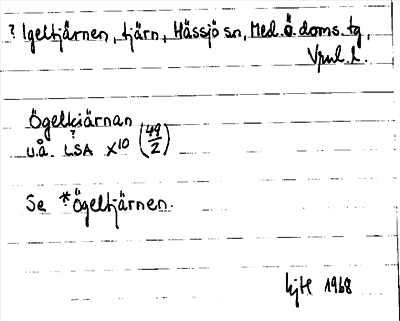 ? Igeltjärnen, tjärn, Hässjö sn, Med.Ö doms.tg,
Vnul. l.
Ögelkiärnan
?
u.å. LSA X10 (49/2)
Se *Ögeltjärnen.
1968